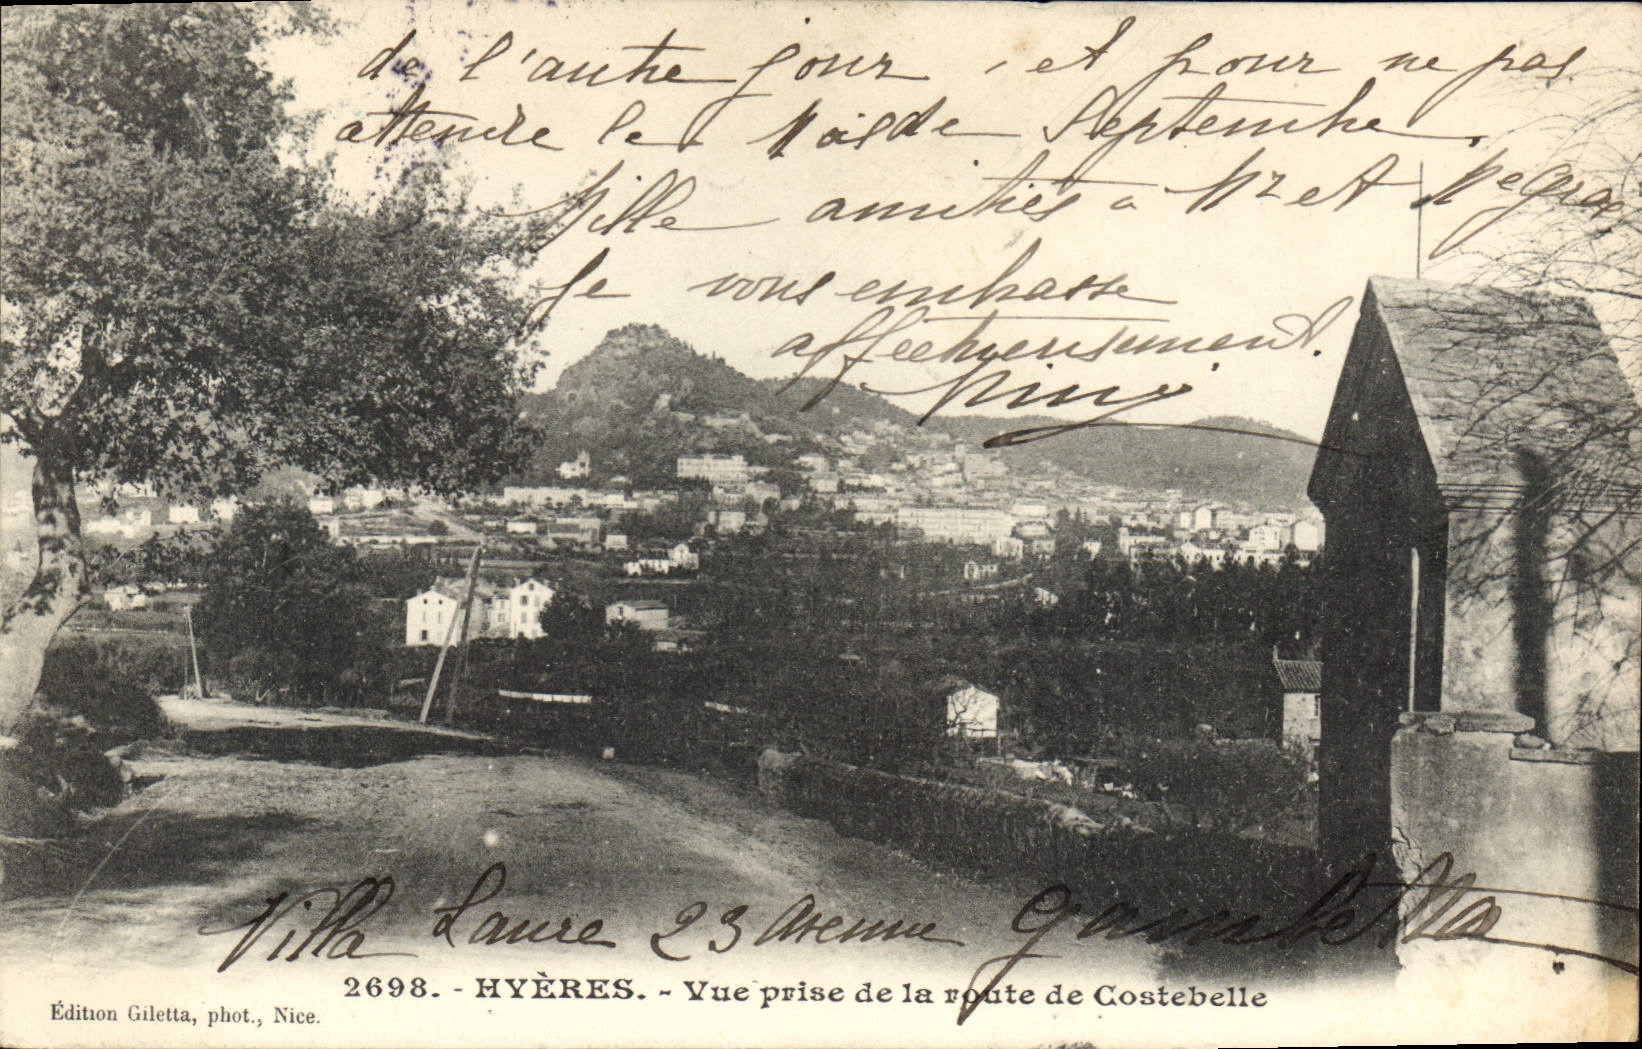 de l'autre jour, et pour ne pas
attendre le Mois de Septembre.
Mille amitiés a Mr et Me Gras
Je vous embrasse
affectueusement.
Mimi
Villa Laure 23 Avenue Gambetta
2698. - HYÈRES. - Vue prise de la route de Costebelle
Édition Giletta, phot., Nice.